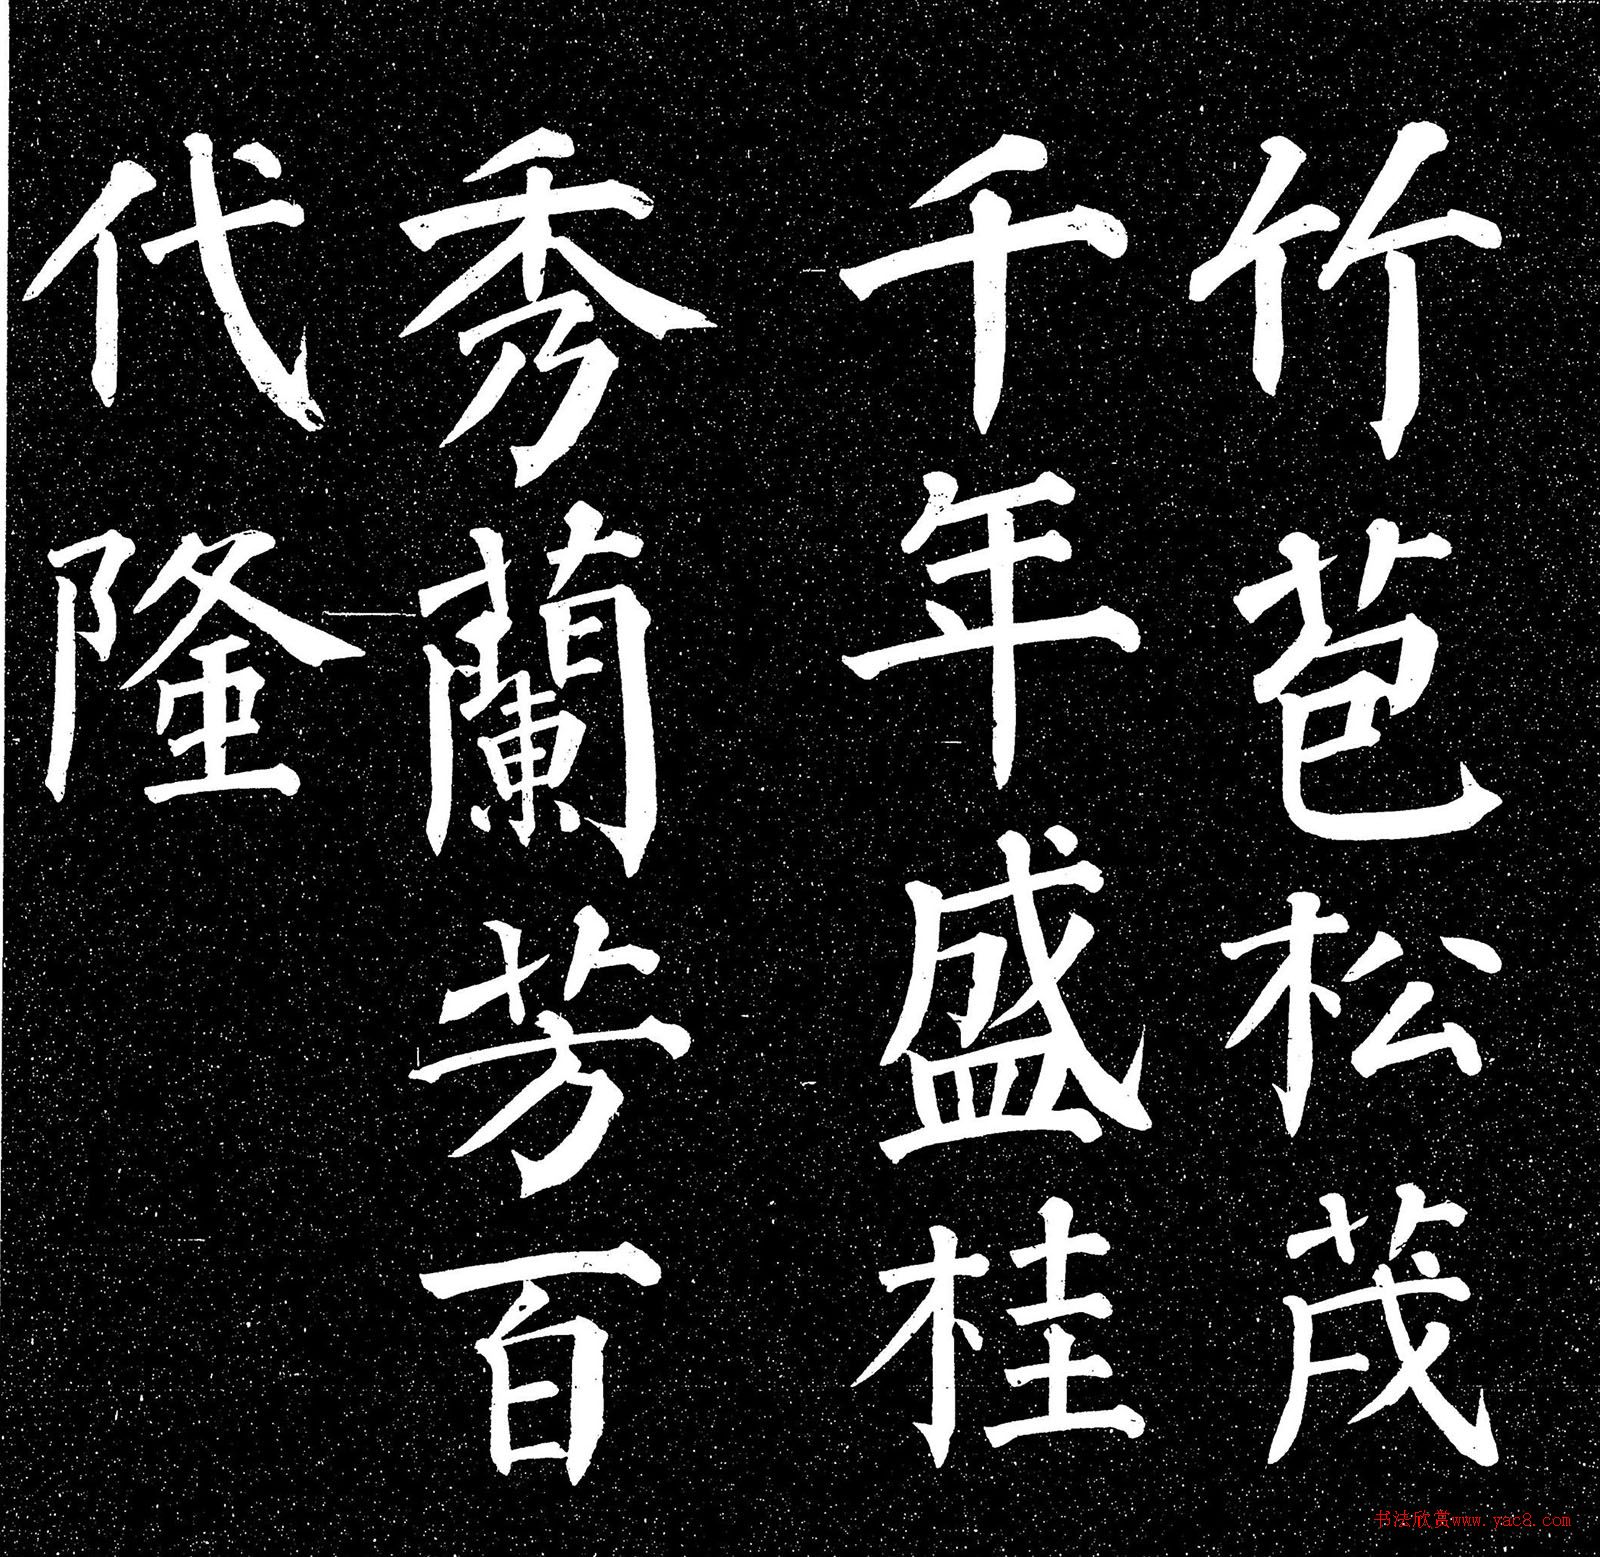 竹苞松茂
千年盛桂
秀蘭芳百
代隆
书法欣赏www.yac8.com